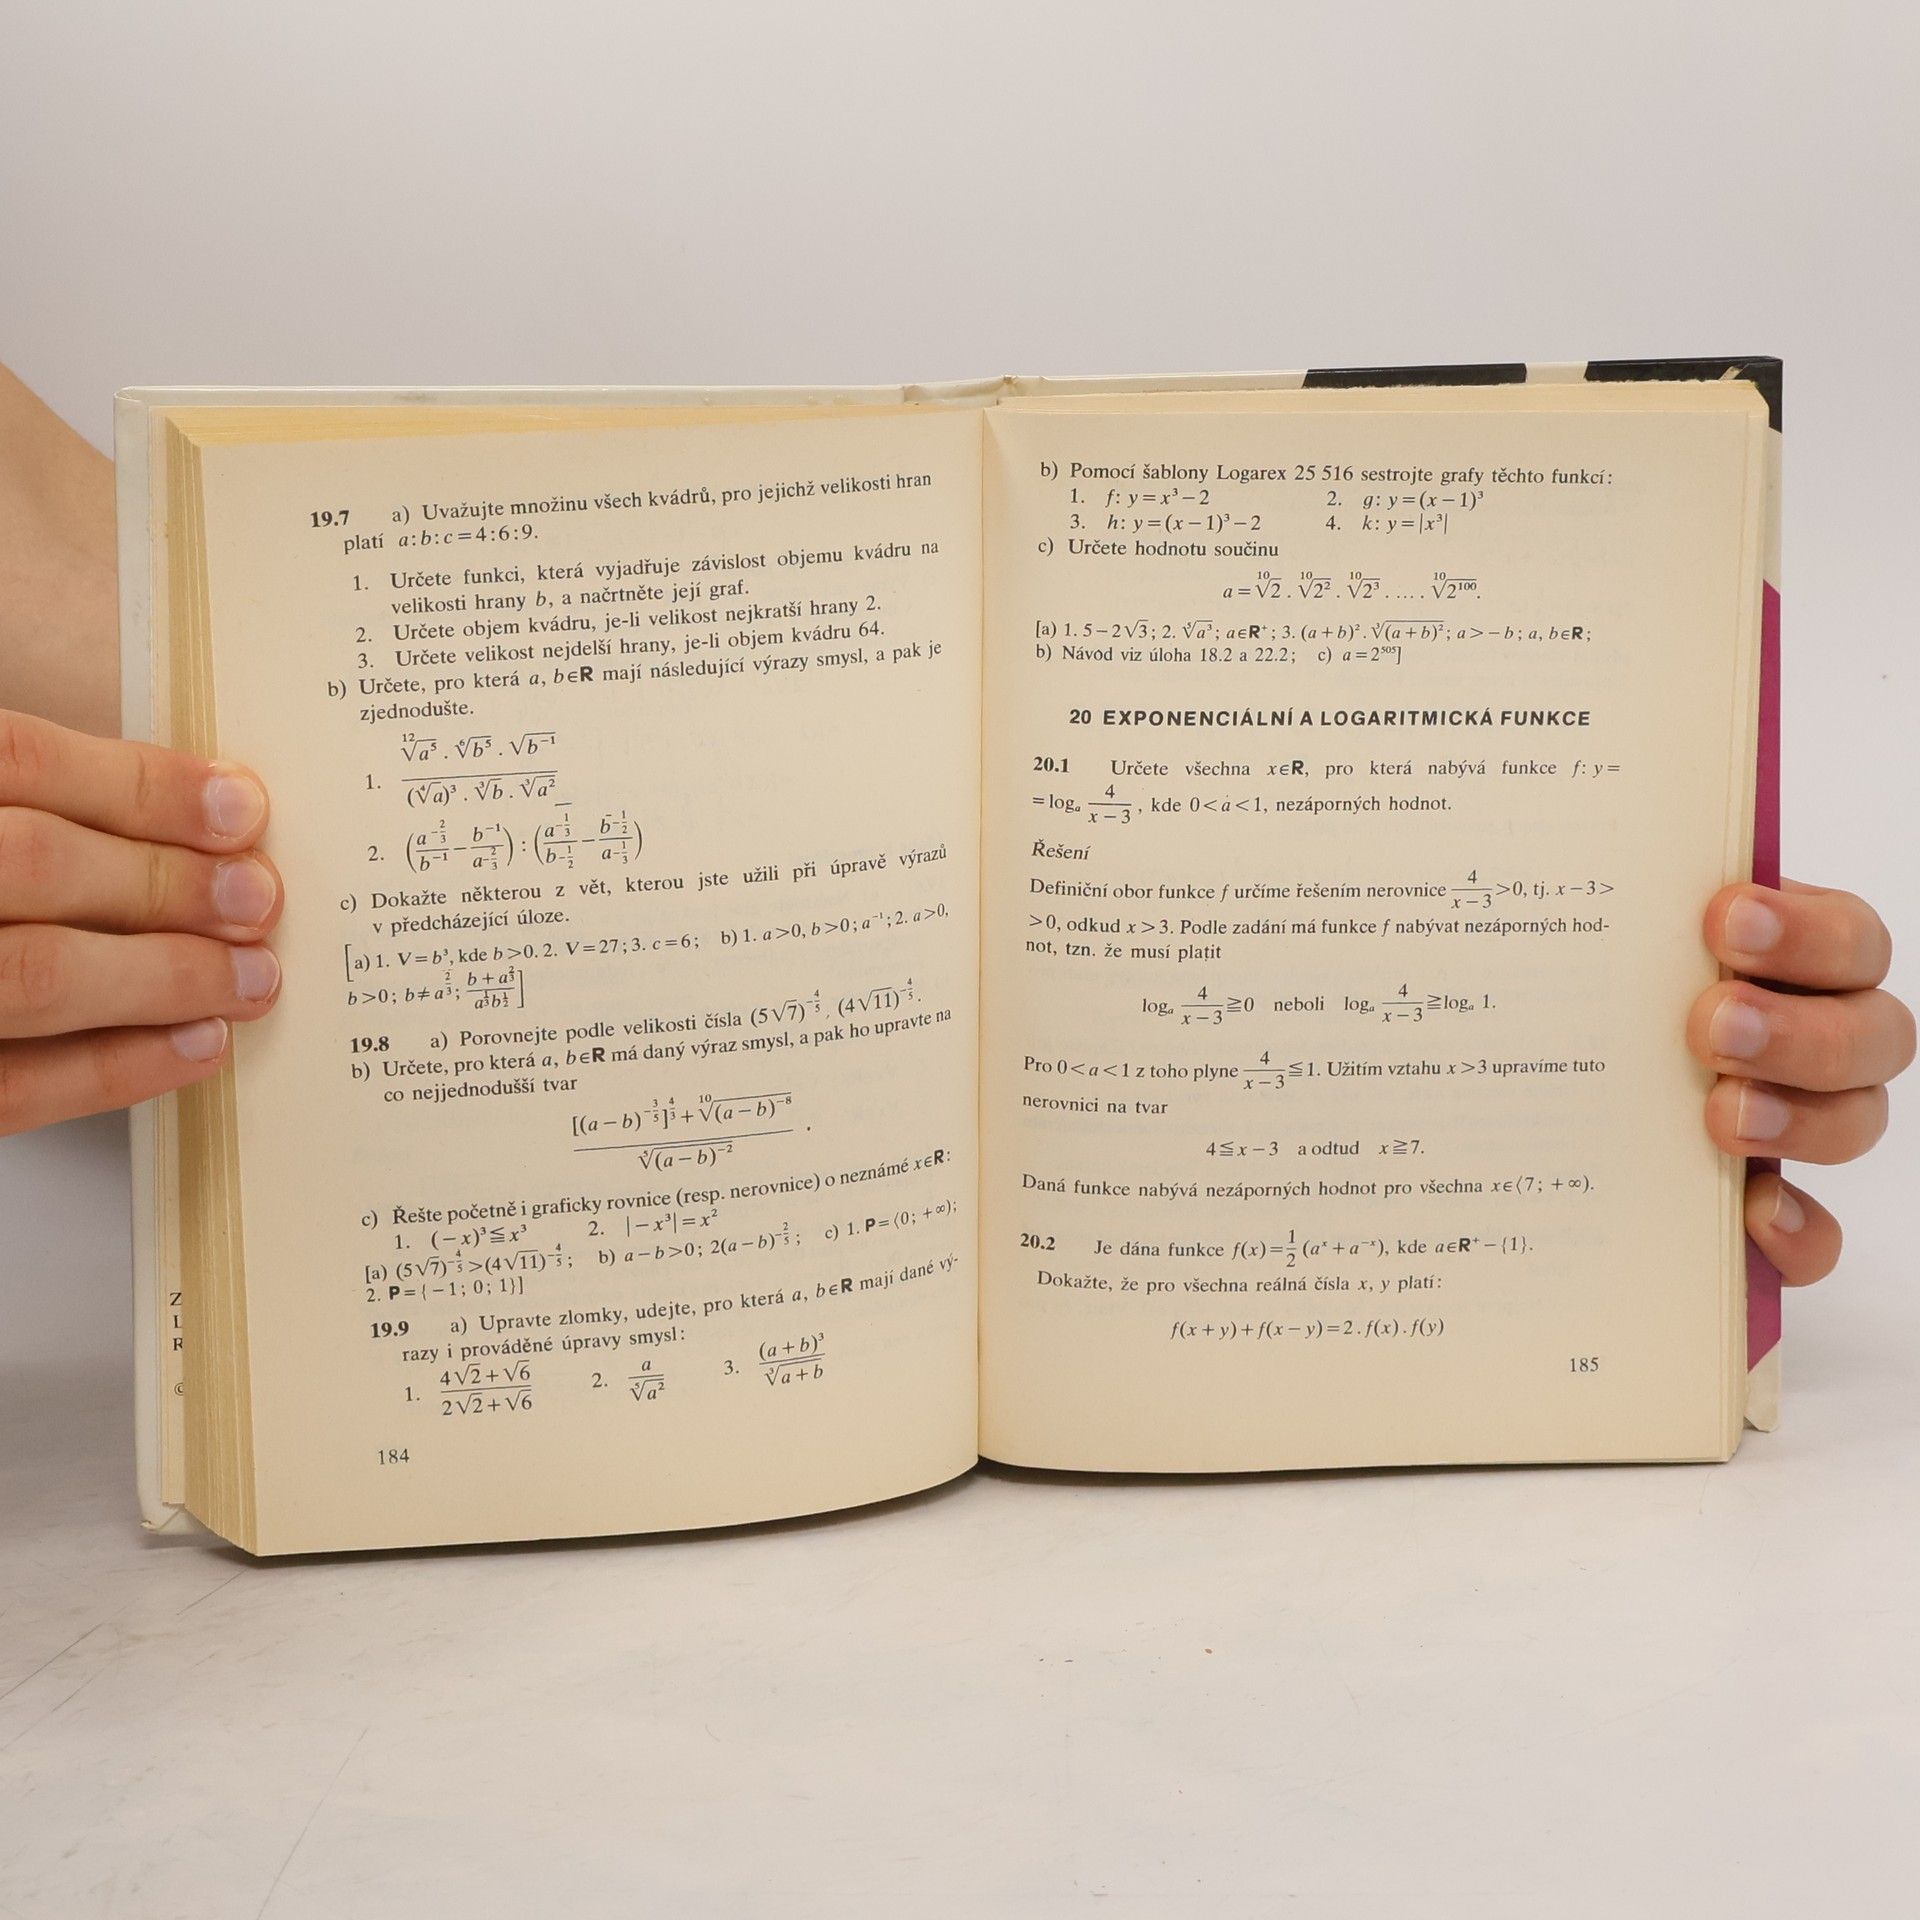 19.7 a) Uvažujte množinu všech kvádrů, pro jejichž velikosti hran
platí a:b:c=4:6:9.
1. Určete funkci, která vyjadřuje závislost objemu kvádru na
velikosti hrany b, a načrtněte její graf.
2. Určete objem kvádru, je-li velikost nejkratší hrany 2.
3. Určete velikost nejdelší hrany, je-li objem kvádru 64.
b) Určete, pro která a, b∈R mají následující výrazy smysl, a pak je
zjednodušte.
1. \frac{\sqrt[12]{a^5} . \sqrt[6]{b^5} . \sqrt{b^{-1}}}{(\sqrt[4]{a})^3 . \sqrt[3]{b} . \sqrt[3]{a^2}}
2. (\frac{a^{-\frac{2}{3}}}{b^{-1}} − \frac{b^{-1}}{a^{-\frac{2}{3}}}) : (\frac{a^{-\frac{1}{3}}}{b^{-\frac{1}{2}}} − \frac{b^{-\frac{1}{2}}}{a^{-\frac{1}{3}}})
c) Dokažte některou z vět, kterou jste užili při úpravě výrazů
v předcházející úloze.
[a) 1. V=b³, kde b>0. 2. V=27; 3. c=6; b) 1. a>0, b>0; a⁻¹; 2. a>0,
b>0; b≠a^{\frac{2}{3}}; \frac{b+a^{\frac{2}{3}}}{a^{\frac{1}{3}}b^{\frac{1}{2}}}]
19.8 a) Porovnejte podle velikosti čísla (5√7)^{-\frac{4}{5}}, (4√11)^{-\frac{4}{5}}.
b) Určete, pro která a, b∈R má daný výraz smysl, a pak ho upravte na
co nejjednodušší tvar
\frac{[(a−b)^{-\frac{3}{5}}]^{\frac{4}{3}} + \sqrt[10]{(a−b)^{-8}}}{\sqrt[5]{(a−b)^{-2}}} .
c) Řešte početně i graficky rovnice (resp. nerovnice) o neznámé x∈R:
1. (−x)³≦x³ 2. |−x³|=x²
[a) (5√7)^{-\frac{4}{5}}>(4√11)^{-\frac{4}{5}}; b) a−b>0; 2(a−b)^{-\frac{2}{5}}; c) 1. P=⟨0; +∞);
2. P={−1; 0; 1}]
19.9 a) Upravte zlomky, udejte, pro která a, b∈R mají dané vý-
razy i prováděné úpravy smysl:
1. \frac{4√2+√6}{2√2+√6} 2. \frac{a}{\sqrt[5]{a^2}} 3. \frac{(a+b)^3}{\sqrt[3]{a+b}}
184
b) Pomocí šablony Logarex 25 516 sestrojte grafy těchto funkcí:
1. f: y=x³−2 2. g: y=(x−1)³
3. h: y=(x−1)³−2 4. k: y=|x³|
c) Určete hodnotu součinu
a=\sqrt[10]{2} . \sqrt[10]{2^2} . \sqrt[10]{2^3} . … . \sqrt[10]{2^{100}}.
[a) 1. 5−2√3; 2. \sqrt[5]{a^3}; a∈R⁺; 3. (a+b)². \sqrt[3]{(a+b)^2}; a>−b; a, b∈R;
b) Návod viz úloha 18.2 a 22.2; c) a=2⁵⁰⁵]
20 EXPONENCIÁLNÍ A LOGARITMICKÁ FUNKCE
20.1 Určete všechna x∈R, pro která nabývá funkce f: y=
=logₐ \frac{4}{x−3}, kde 0<a<1, nezáporných hodnot.
Řešení
Definiční obor funkce f určíme řešením nerovnice \frac{4}{x−3}>0, tj. x−3>
>0, odkud x>3. Podle zadání má funkce f nabývat nezáporných hod-
not, tzn. že musí platit
logₐ \frac{4}{x−3}≧0 neboli logₐ \frac{4}{x−3}≧logₐ 1.
Pro 0<a<1 z toho plyne \frac{4}{x−3}≦1. Užitím vztahu x>3 upravíme tuto
nerovnici na tvar
4≦x−3 a odtud x≧7.
Daná funkce nabývá nezáporných hodnot pro všechna x∈⟨7; +∞).
20.2 Je dána funkce f(x)=\frac{1}{2}(aˣ+a⁻ˣ), kde a∈R⁺−{1}.
Dokažte, že pro všechna reálná čísla x, y platí:
f(x+y)+f(x−y)=2.f(x).f(y)
185
Z
R
©